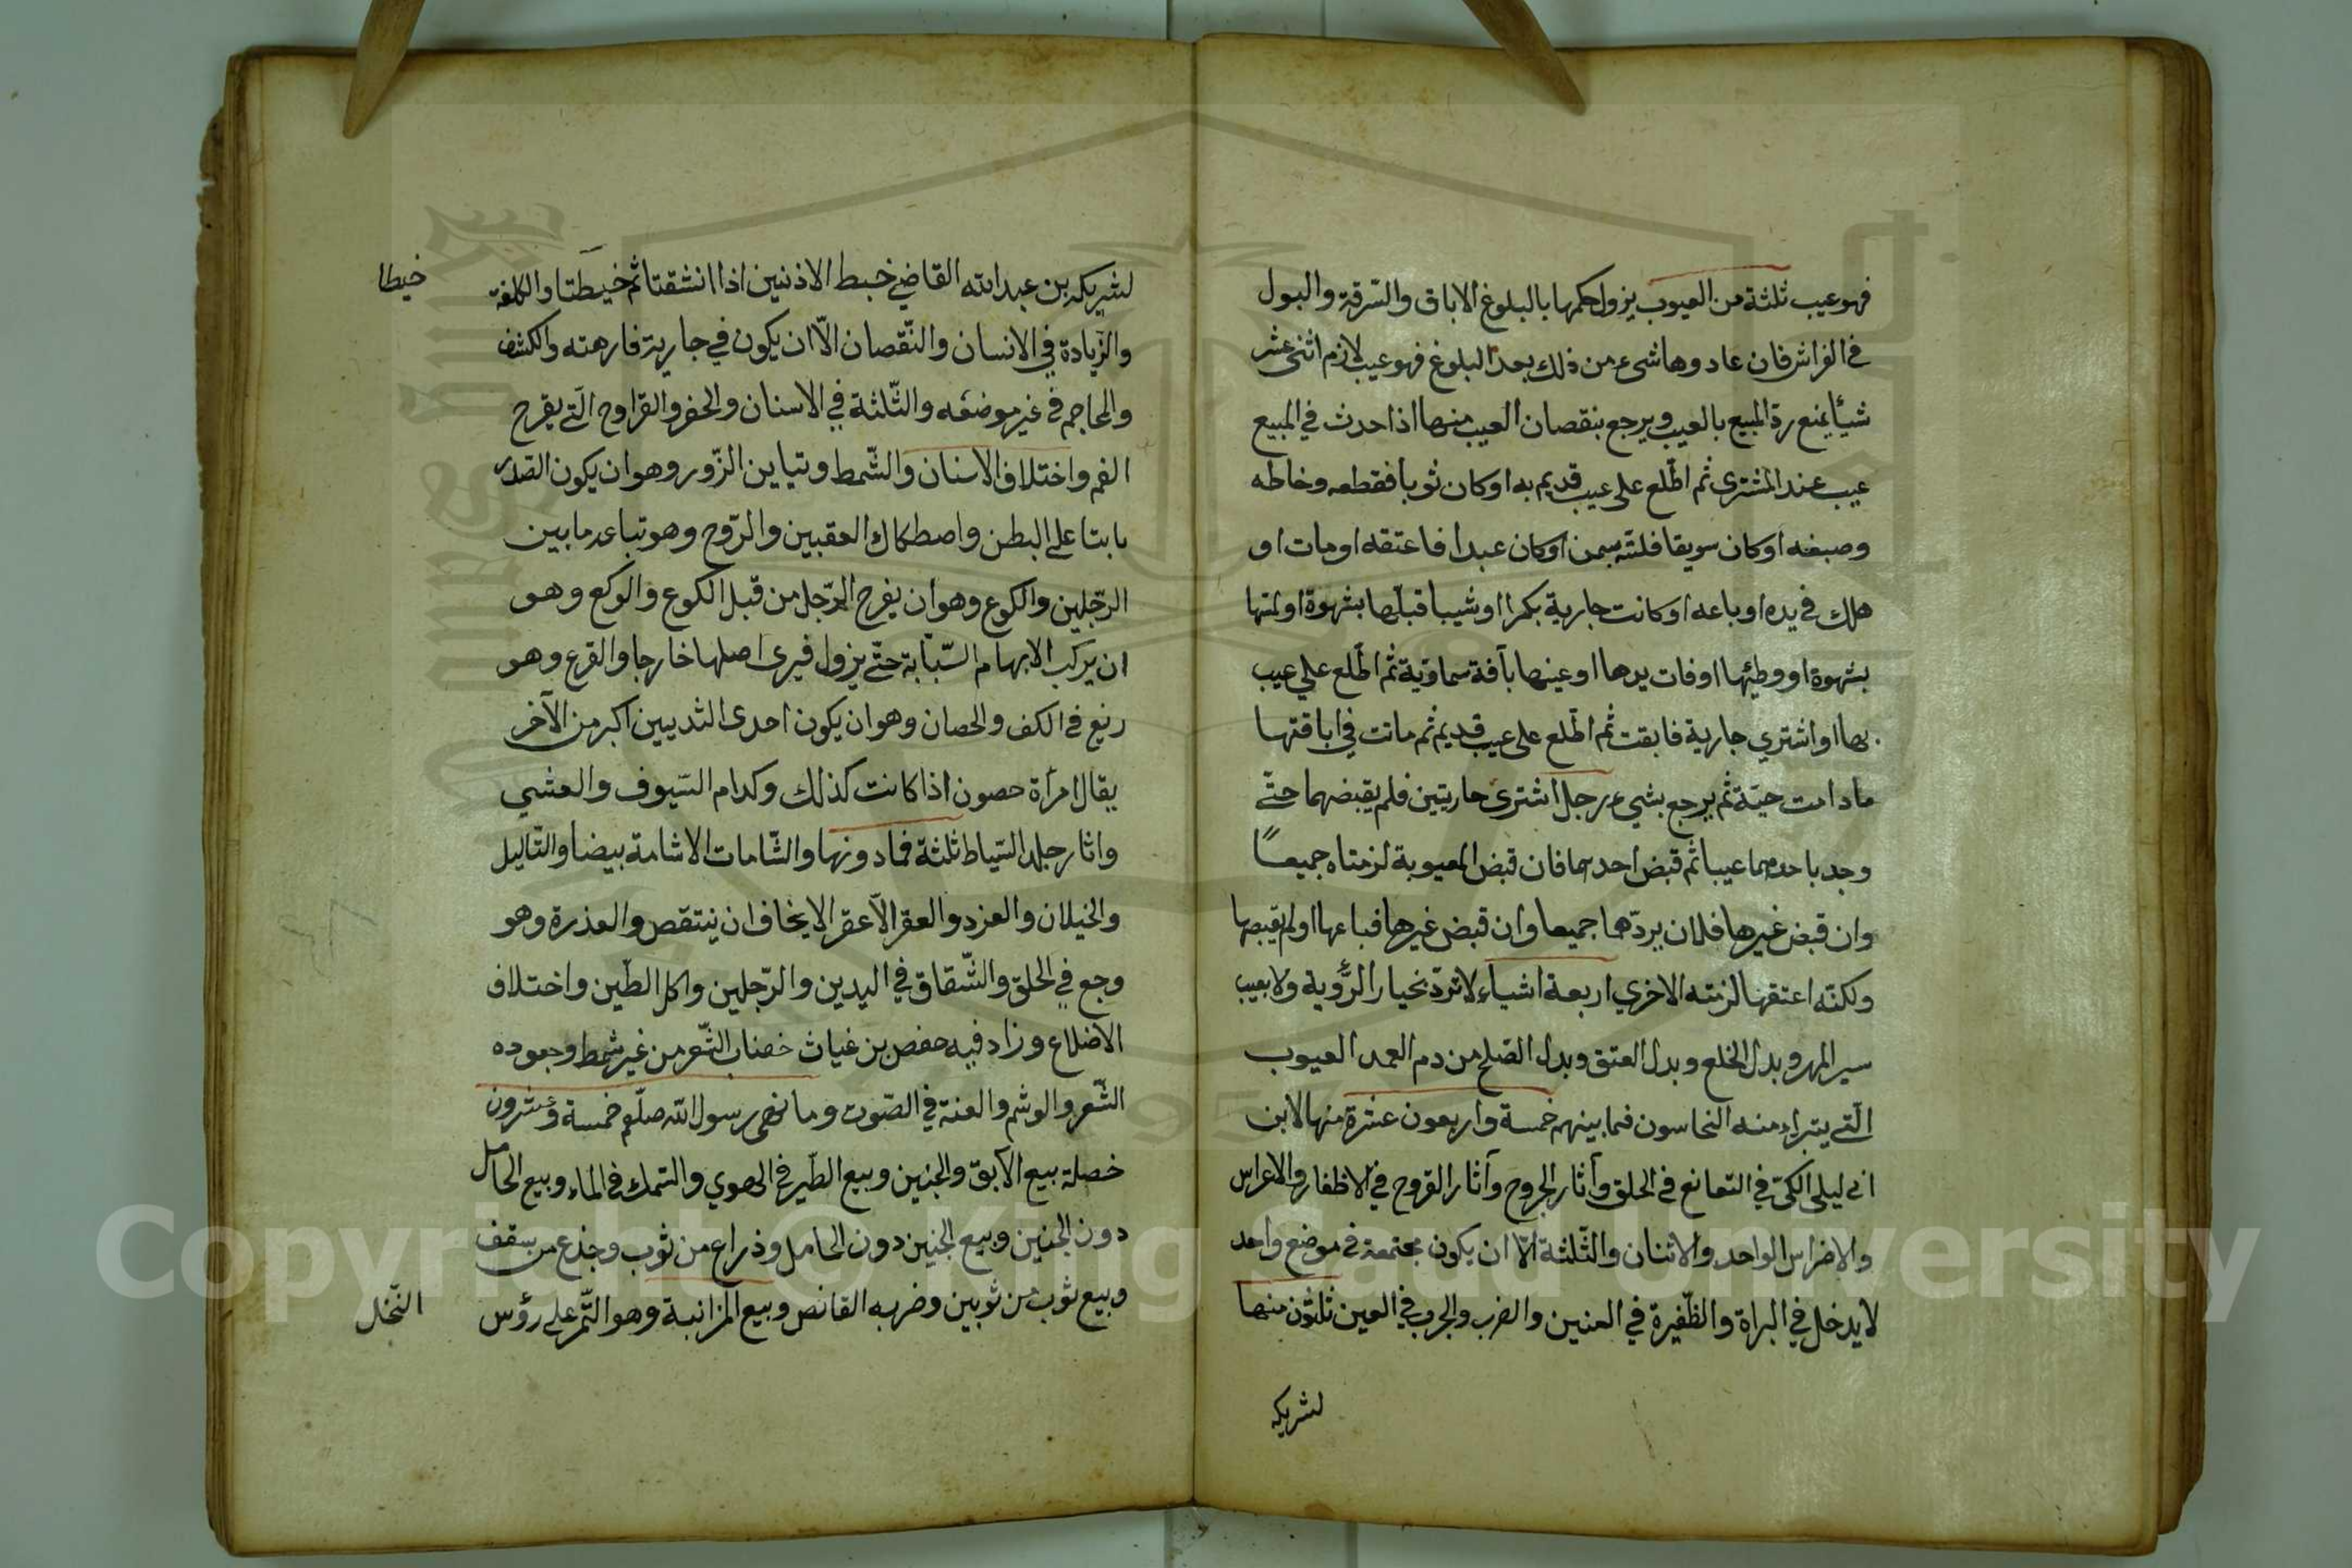 فهو عيب ثلثة من العيوب يزول حكمها بالبلوغ الاباق والسّرقة والبول
في الفراش فان عاد وها شيء من ذلك بعد البلوغ فهو عيب لازم اثنى عشر
شيأ يمنع ردّ المبيع بالعيب ويرجع بنقصان العيب منها اذا حدث في المبيع
عيب عند المشترى ثم اطّلع على عيب قديم به او كان ثوبا فقطعه وخاطه
وصبغه او كان سويقا فلتّه بسمن او كان عبدا فاعتقه او مات او
هلك في يده او باعه او كانت جارية بكرا او ثيبا قبّلها بشهوة او لمسها
بشهوة او وطيها او فات يدها او عينها بآفة سماوّية ثم اطّلع علي عيب
بها او اشتري جارية فابقت ثم اطّلع على عيب قديم ثم ماتت في اباقتها
ما دامت حيّة ثم يرجع بشيء رجل اشترى جاريتين فلم يقبضهما حتّے
وجد باحدهما عيبا ثم قبض احدهما فان قبض المعيوبة لزمتاه جميعاً
وان قبض غيرها فله ان يردّها جميعا وان قبض غيرها فباعها او لم يقبضها
ولكنّه اعتقها لزمته الاخري اربعة اشياء لا تردّ بخيار الرّؤية ولا بعيب
سير المهر وبدل الخلع وبدل العتق وبدل الصّلح من دم العمد العيوب
الّتے يتبراء منه النحاسون فيما بينهم خمسة واربعون عشرة منها لابن
ابى ليلى الكىّ في التعانغ في الحلق وآثار الجروح وآثار القروح في الاظفار والاعراس
والاضراس الواحد والاثنان والثّلثة الّا ان يكون مجتمعة في موضع واحد
لا يدخل في البراة والظّفيرة في العنين والضرب والجرب في العين ثلثون منها
لشريك
لشريك بن عبد الله القاضي خبط الاذنين اذا انشقتا ثم خيطتا والكلفة
خيطا
والزّيادة في الانسان والنّقصان الّا ان يكون في جارية فارهته والكشف
والمحاجم في غير موضعه والثّلثة في الاسنان والحفر والقراوح الّتے يقرح
الفم واختلاف الاسنان والشّمط وتباين الزّور وهو ان يكون الصّدر
نابتا على البطن واصطكاك العقبين والرّوح وهو تباعد ما بين
الرّجلين والكوع وهو ان يفرج الرّجل من قبل الكوع والوكع وهو
ان يركب الابهام السّبّابة حتّے يزول فيرى اصلها خارجا والقرع وهو
ريع في الكف والحصان وهو ان يكون احدى الثديين اكبر من الآخر
يقال امرأة حصون اذا كانت كذلك وكدام السّيوف والعشي
واثار جلد السّياط ثلثة فما دونها والشّامات الا شامة بيضا والثّاليل
والخيلان والغرد والعقر الّا عقر لا يخاف ان ينتقص والعذرة وهو
وجع في الحلق والشّقاق في اليدين والرّجلين واكل الطّين واختلاف
الاضلاع وزاد فيه حفص بن غياث خضاب الشّعر من غير شمط وجعوده
الشّعر والوشم والغنة في الصّوت وما نهى رسول الله صلّعم خمسة وعشرون
خصلة بيع الآبق والجنين وبيع الطّير في الهوي والسّمك في الماء وبيع الحامل
دون الجنين وبيع الجنين دون الحامل وذراع من ثوب وجذع من سقف
وبيع ثوب من ثوبين وضربه القانص وبيع المزانبة وهو التّمر على رؤس
النّخل
Copyright © King Saud University